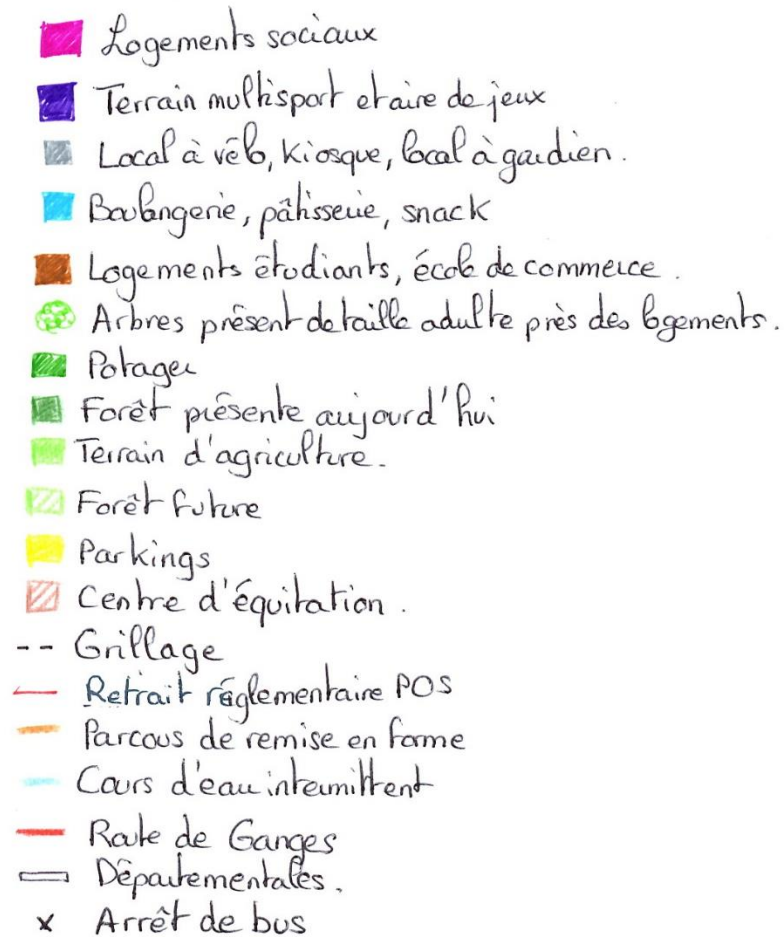 Logements sociaux
Terrain multisport et aire de jeux
Local à vélo, kiosque, local à gardien.
Boulangerie, pâtisserie, snack
Logements étudiants, école de commerce.
Arbres présent de taille adulte près des logements.
Potager
Forêt présente aujourd'hui
Terrain d'agriculture.
Forêt future
Parkings
Centre d'équitation.
Grillage
Retrait réglementaire POS
Parcous de remise en forme
Cours d'eau intermittent
Route de Ganges
Départementales.
Arrêt de bus